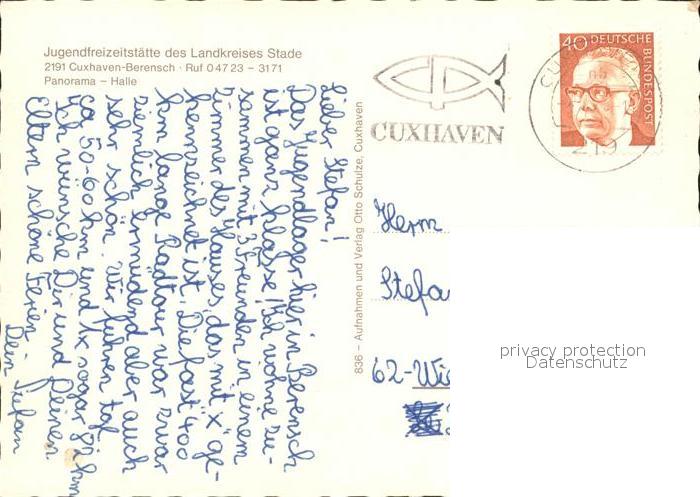 Jugendfreizeitstätte des Landkreises Stade
2191 Cuxhaven-Berensch · Ruf 0 47 23 – 31 71
Panorama – Halle
CUXHAVEN
40 DEUTSCHE
BUNDESPOST
219
836 – Aufnahmen und Verlag Otto Schulze, Cuxhaven
Lieber Stefan!
Das Jugendlager hier in Berensch
ist ganz klasse! Ich wohne zu-
sammen mit 3 Freunden in einem
Zimmer des Hauses, das mit "x" ge-
kennzeichnet ist. Die fast 400
km lange Radtour war zwar
ziemlich ermüdend aber auch
sehr schön. Wir fuhren tägl.
ca 50-60 km und 1x sogar 82 km
Ich wünsche Dir und Deinen
Eltern schöne Ferien
Dein Stefan
Herrn
Stefa
62-Wi
privacy protection
Datenschutz